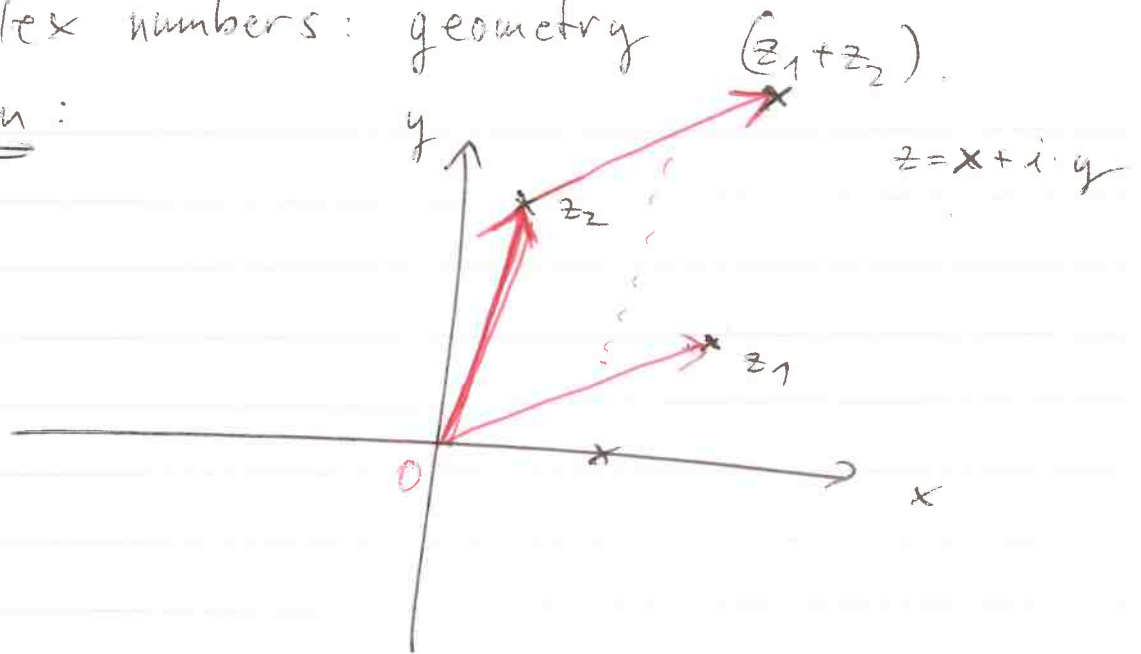 lex numbers: geometry
(z₁+z₂).
n:
y
z=x+i·y
z₂
z₁
0
x